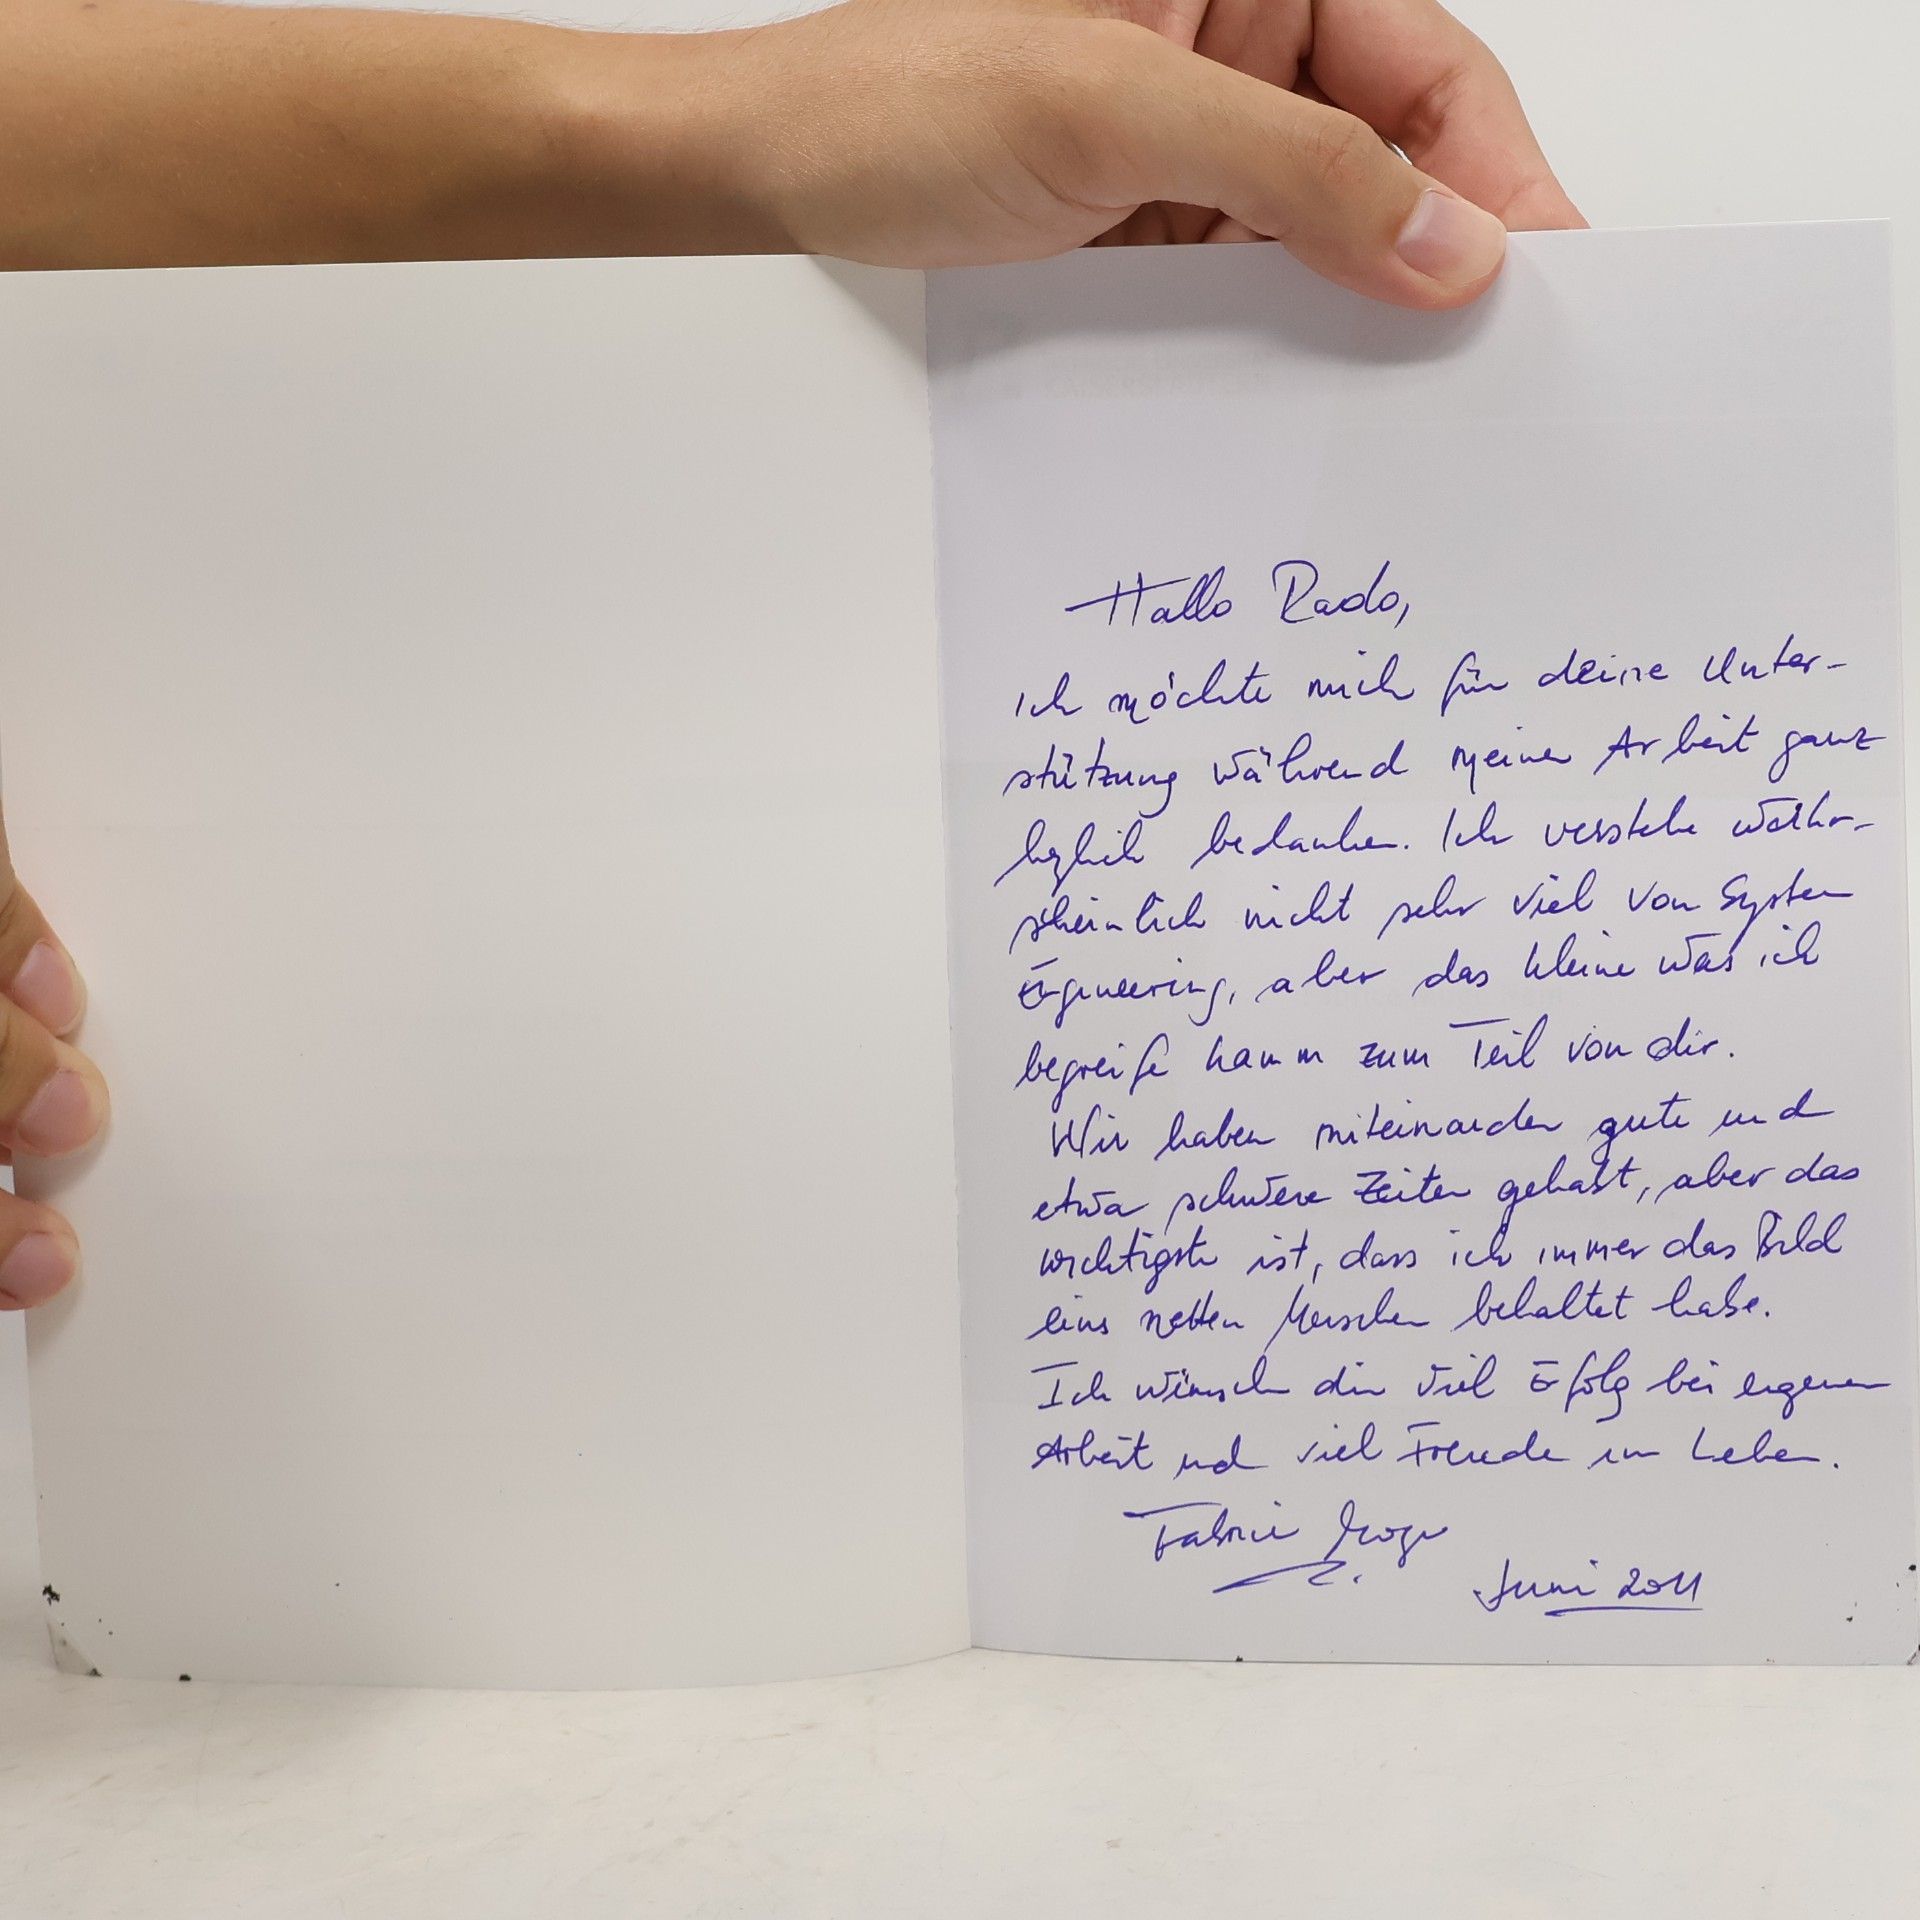 Hallo Rado,
ich möchte mich für deine Unter-
stützung während meiner Arbeit ganz
herzlich bedanken. Ich verstehe wahr-
scheinlich nicht sehr viel von System
Engineering, aber das kleine was ich
begreife kamm zum Teil von dir.
Wir haben miteinander gute und
etwa schwere Zeiten gehabt, aber das
wichtigste ist, dass ich immer das Bild
eins netten Menschen behaltet habe.
Ich wünsch dir viel Erfolg bei eigenen
Arbeit und viel Freude im Leben.
Juni 2011